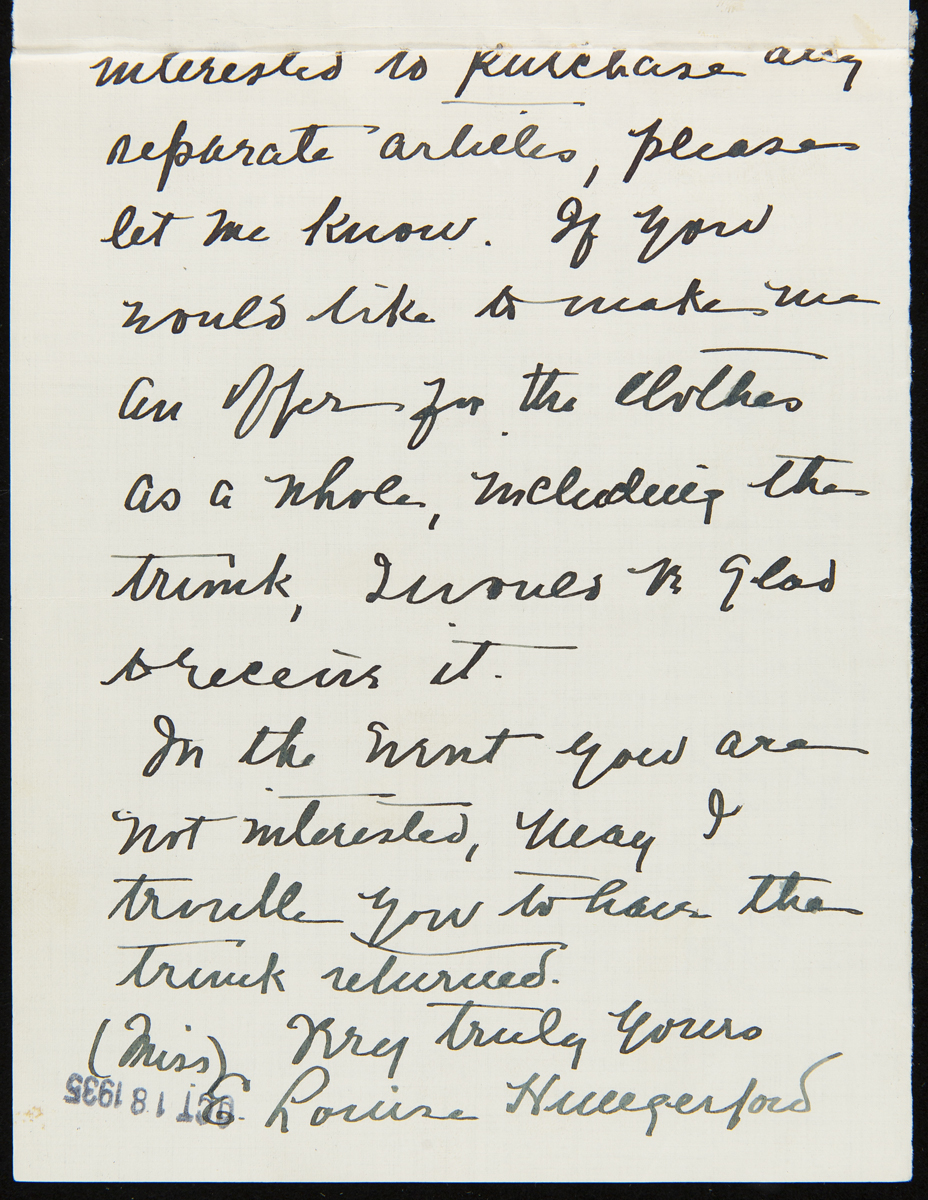 interested to purchase any
separate articles, please
let me know. If you
would like to make me
an offer for the clothes
as a whole, including the
trunk, I would be glad
to receive it.
In the event you are
not interested, may I
trouble you to have the
trunk returned.
Very truly yours
(Miss) E Louise Hungerford
OCT 18 1935